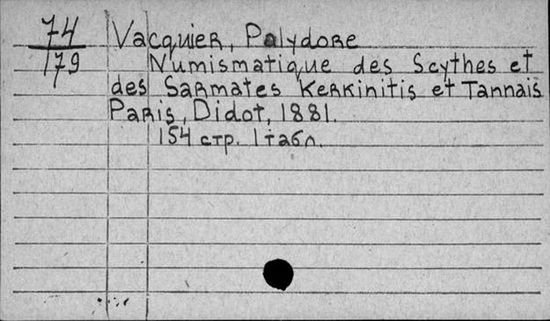 74 Vacquier, Polydore
179 Numismatique des Scythes et
des Sarmates Kerkinitis et Tannais
Paris, Didot, 1881.
154 стр. 1 табл.